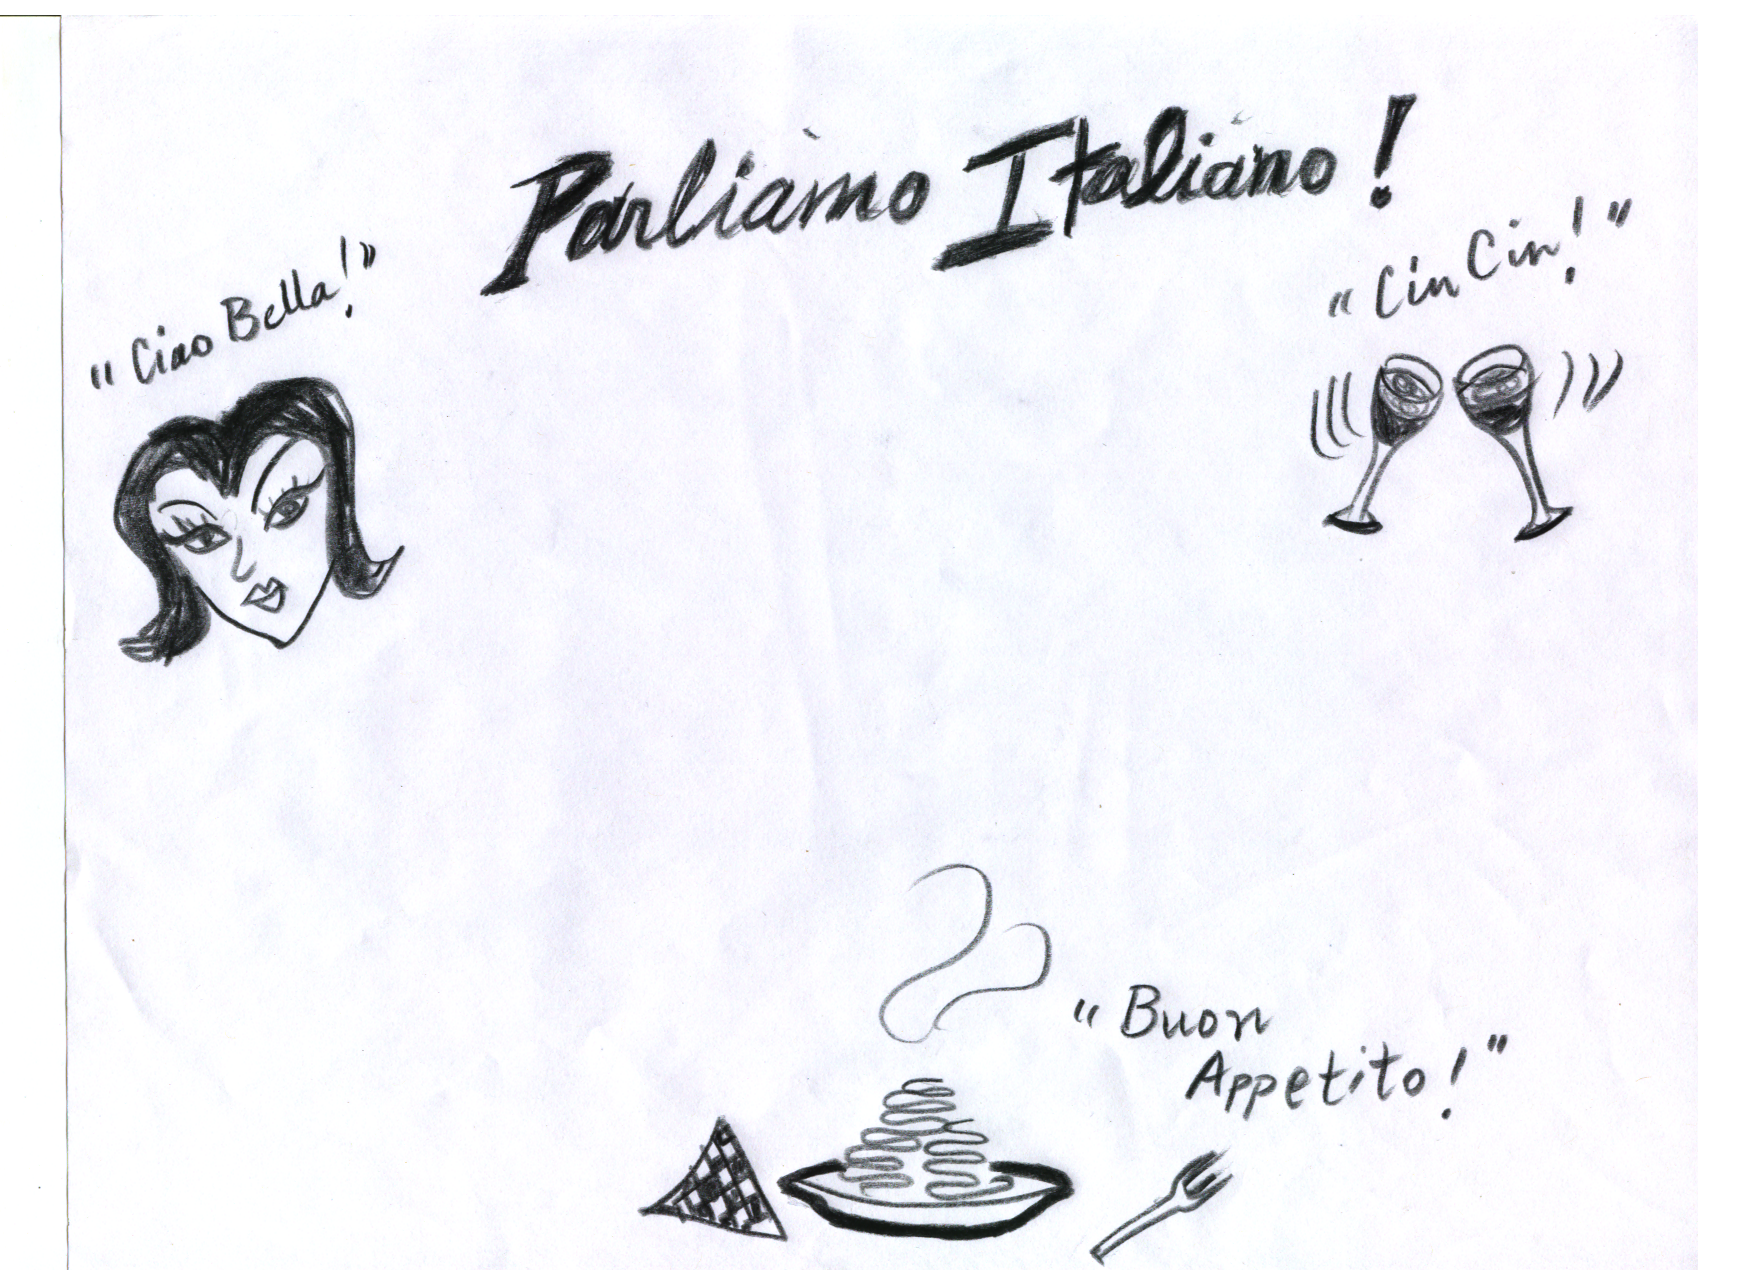 Parliamo Italiano!
"Ciao Bella!"
"Cin Cin!"
"Buon
Appetito!"